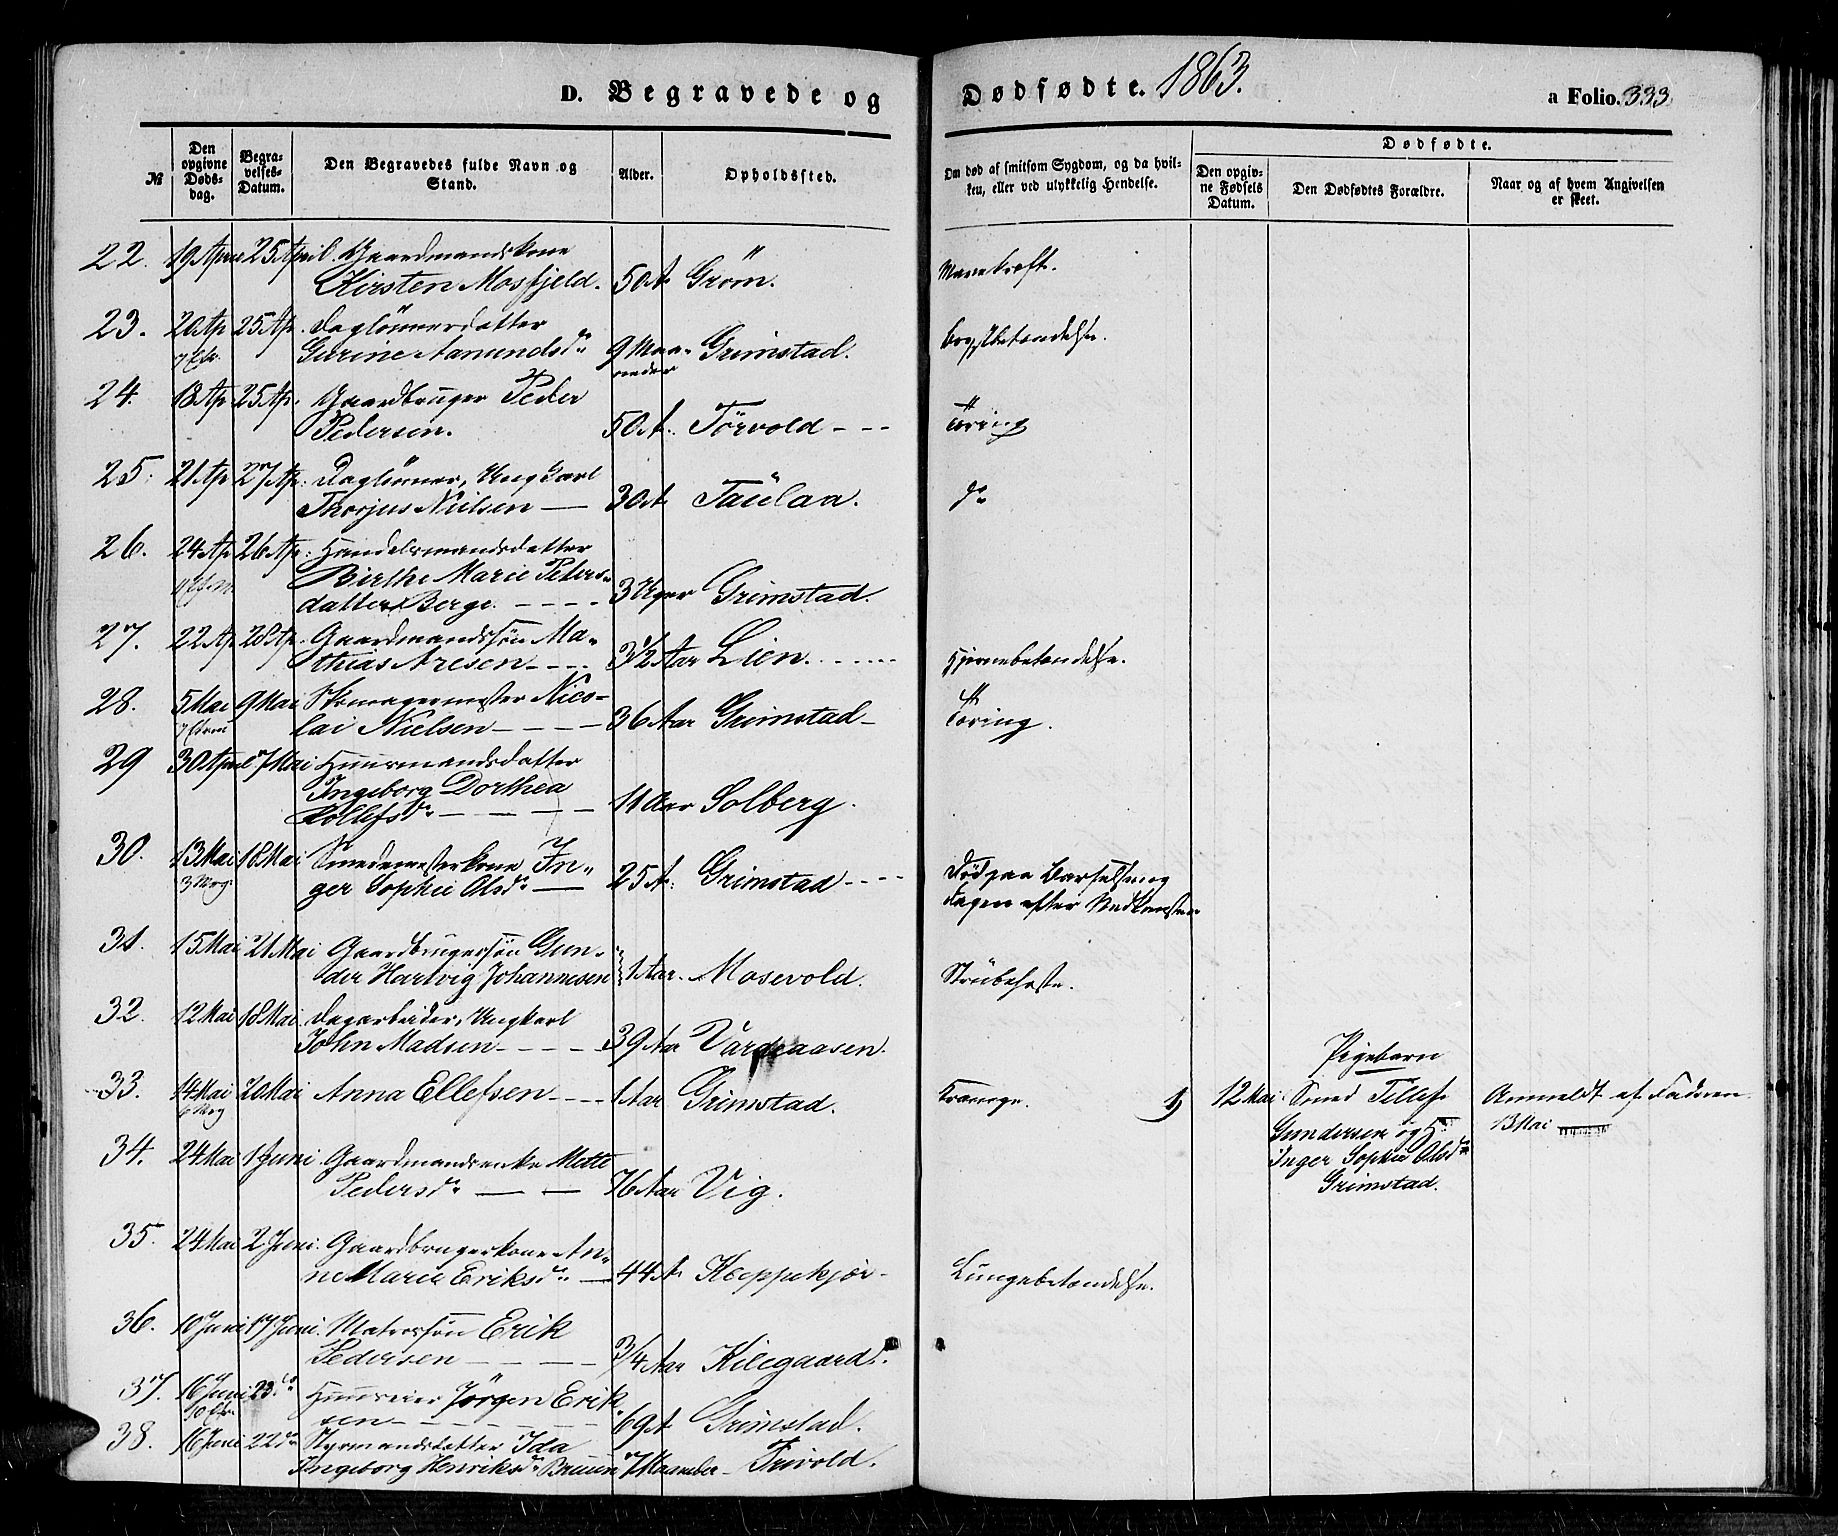 D. Begravede og Dødfødte. 1863.
a Folio. 333
№
Den opgivne Døds-dag.
Begra-velses-Datum.
Den Begravedes fulde Navn og Stand.
Alder.
Opholdssted.
Om død af smitsom Sygdom, og da hvil-ken, eller ved ulykkelig Hendelse.
Dødfødte.
Den opgiv-ne Fødsels Datum.
Den Dødfødtes Forældre.
Naar og af hvem Angivelsen er skeet.
22. 19 April 25 April. Gaardmandskone
Kirsten Mosfjeld. 50 A. Grøm.
23. 20 Ap 25 Ap. Daglönnerdatter
7 Eft. Gurine Aanundsdr 9 Maa- Grimstad. Brystbetændelse.
neder
24. 18 Ap 25 Ap. Gaardbruger Peder
Pedersen. 50 A. Törvold - - - Tæring
25. 21 Ap 27 Ap. Daglönner, Ungkarl
Thorjus Nielsen — 30 A Taulaa. do
26. 24 Ap 26 Ap. Handelsmandsdatter
Birthe Marie Peters-
datter Berge. - - - - 3 Uger Grimstad.
27. 22 Ap 28 Ap. Gaardmandssön Ma-
thias Aresen - - - 3½ Aar Lien. Hjernebetændelse.
28. 5 Mai 9 Mai Skomagermester Nico-
lai Nielsen - - - - 36 Aar Grimstad - Tæring.
29 30 April 7 Mai Huusmandsdatter
Ingeborg Dorthea
Tollefsdr - - - - 11 Aar Solberg.
30. 13 Mai 18 Mai Smedemesterkone In-
3 Mrg. ger Sophie Olsdr — 25 A. Grimstad - - - - Död paa Barselseng
dagen efter Nedkomsten
31. 15 Mai 21 Mai Gaardbrugersön Gun-
der Hartvig Johannesen 1 Aar. Mosevold. Strubehoste.
32. 12 Mai 18 Mai Dagarbeider, Ungkarl
John Madsen - - - - 39 Aar Vardeaasen.
33. 14 Mai 20 Mai Anna Ellefsen - - - - 1 Aar Grimstad. Krampe.
Mrg
1) 12 Mai Pigebarn
Smed Tellef
Gundersen og
Inger Sophie Olsdr
Grimstad.
Anmeldt af Faderen
13 Mai
34. 24 Mai 1 Juni Gaardmandsenke Mette
Pedersdr — — 76 Aar Vig.
35. 24 Mai 2 Juni. Gaardbrugerkone An-
ne Marie Eriksdr — 44 A. Kleppekjær - Lungebetændelse.
36. 10 Juni 17 Juni. Matrossön Erik
Pedersen - - - - 3/4 Aar Kilegaard.
37. 16 Juni 23 do Huuseier Jörgen Erik-
10 Eft. sen - - - - 69 A Grimstad.
38. 16 Juni 22 do Styrmandsdatter Ida
Ingeborg Henriksdr Bruun 7 Maaneder - Trivold.